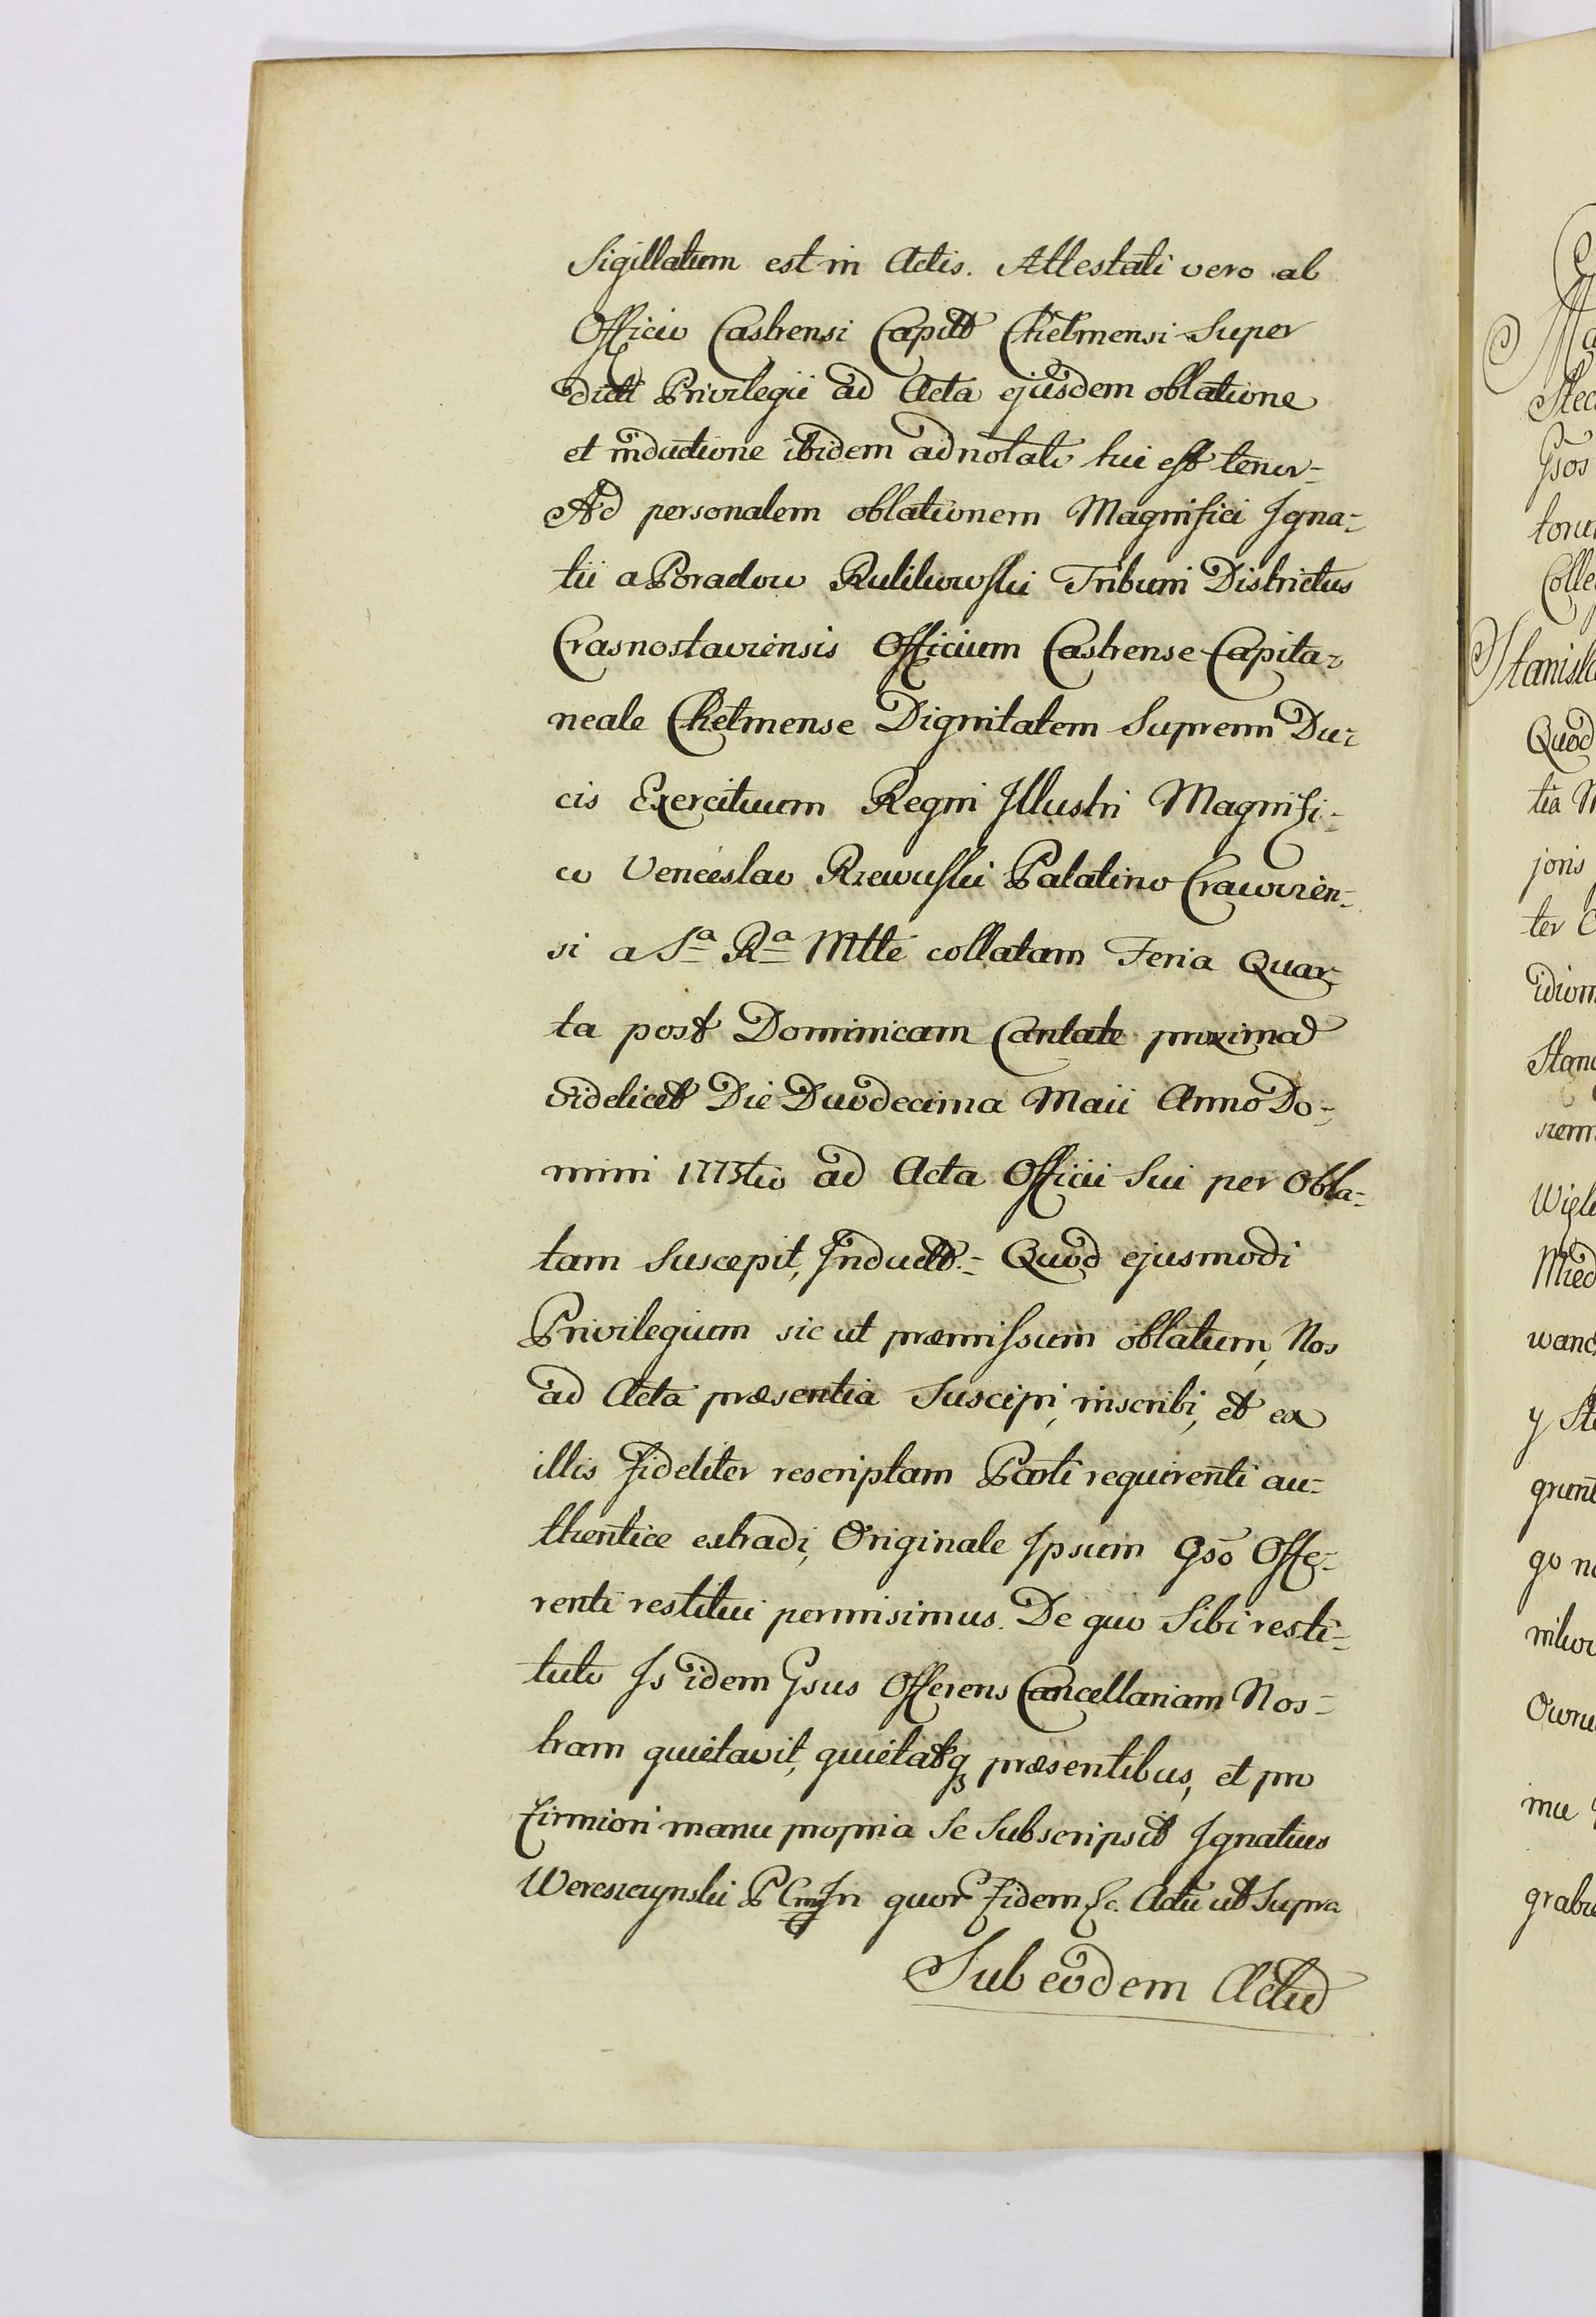 Sigillatum est in Actis. Attestati vero ab
Officio Castrensi Capitt Chelmensi Super
dicti Privilegii ad Acta ejusdem oblatione
et inductione ibidem adnotati hui est tenor=
Ad personalem oblationem Magnifici Igna=
tii a Poradow Kulikowski Tribuni Districtus
Crasnostaviensis Officium Castrense Capita=
neale Chelmense Dignitatem Supremi Du=
cis Exercituum Regni Illustri Magnifi=
co Venceslao Rzewuski Palatino Cracovien=
si a Sa Ra Mtte collatam Feria Quar=
ta post Dominicam Cantate proxima
Videlicet Die Duodecima Maii Anno Do=
mini 1773tio ad Acta Officii Sui per Obla=
tam Suscepit, Inductt.= Quod ejusmodi
Privilegium sic ut præmissum oblatum, Nos
ad Acta præsentia Suscipi, inscribi, et ex
illis fideliter rescriptam Parti requirenti au=
thentice extradi, Originale Ipsum Gso Offe=
renti restitui permisimus. De quo Sibi resti=
tuto Is idem Gsus Offerens Cancellariam Nos=
tram quietavit, quietatq præsentibus, et pro
firmiori manu propria Se Subscripsit Ignatius
Wereszczynski In quor Fidem &c. Actu ut Supra
Sub eodem Actu
Stec
Gsos
Colle
Stanisla
Quod
tia M
joris
ter C
idiom
Stan
Wiele
Mied
wand
y Sta
grunt
go na
grabi